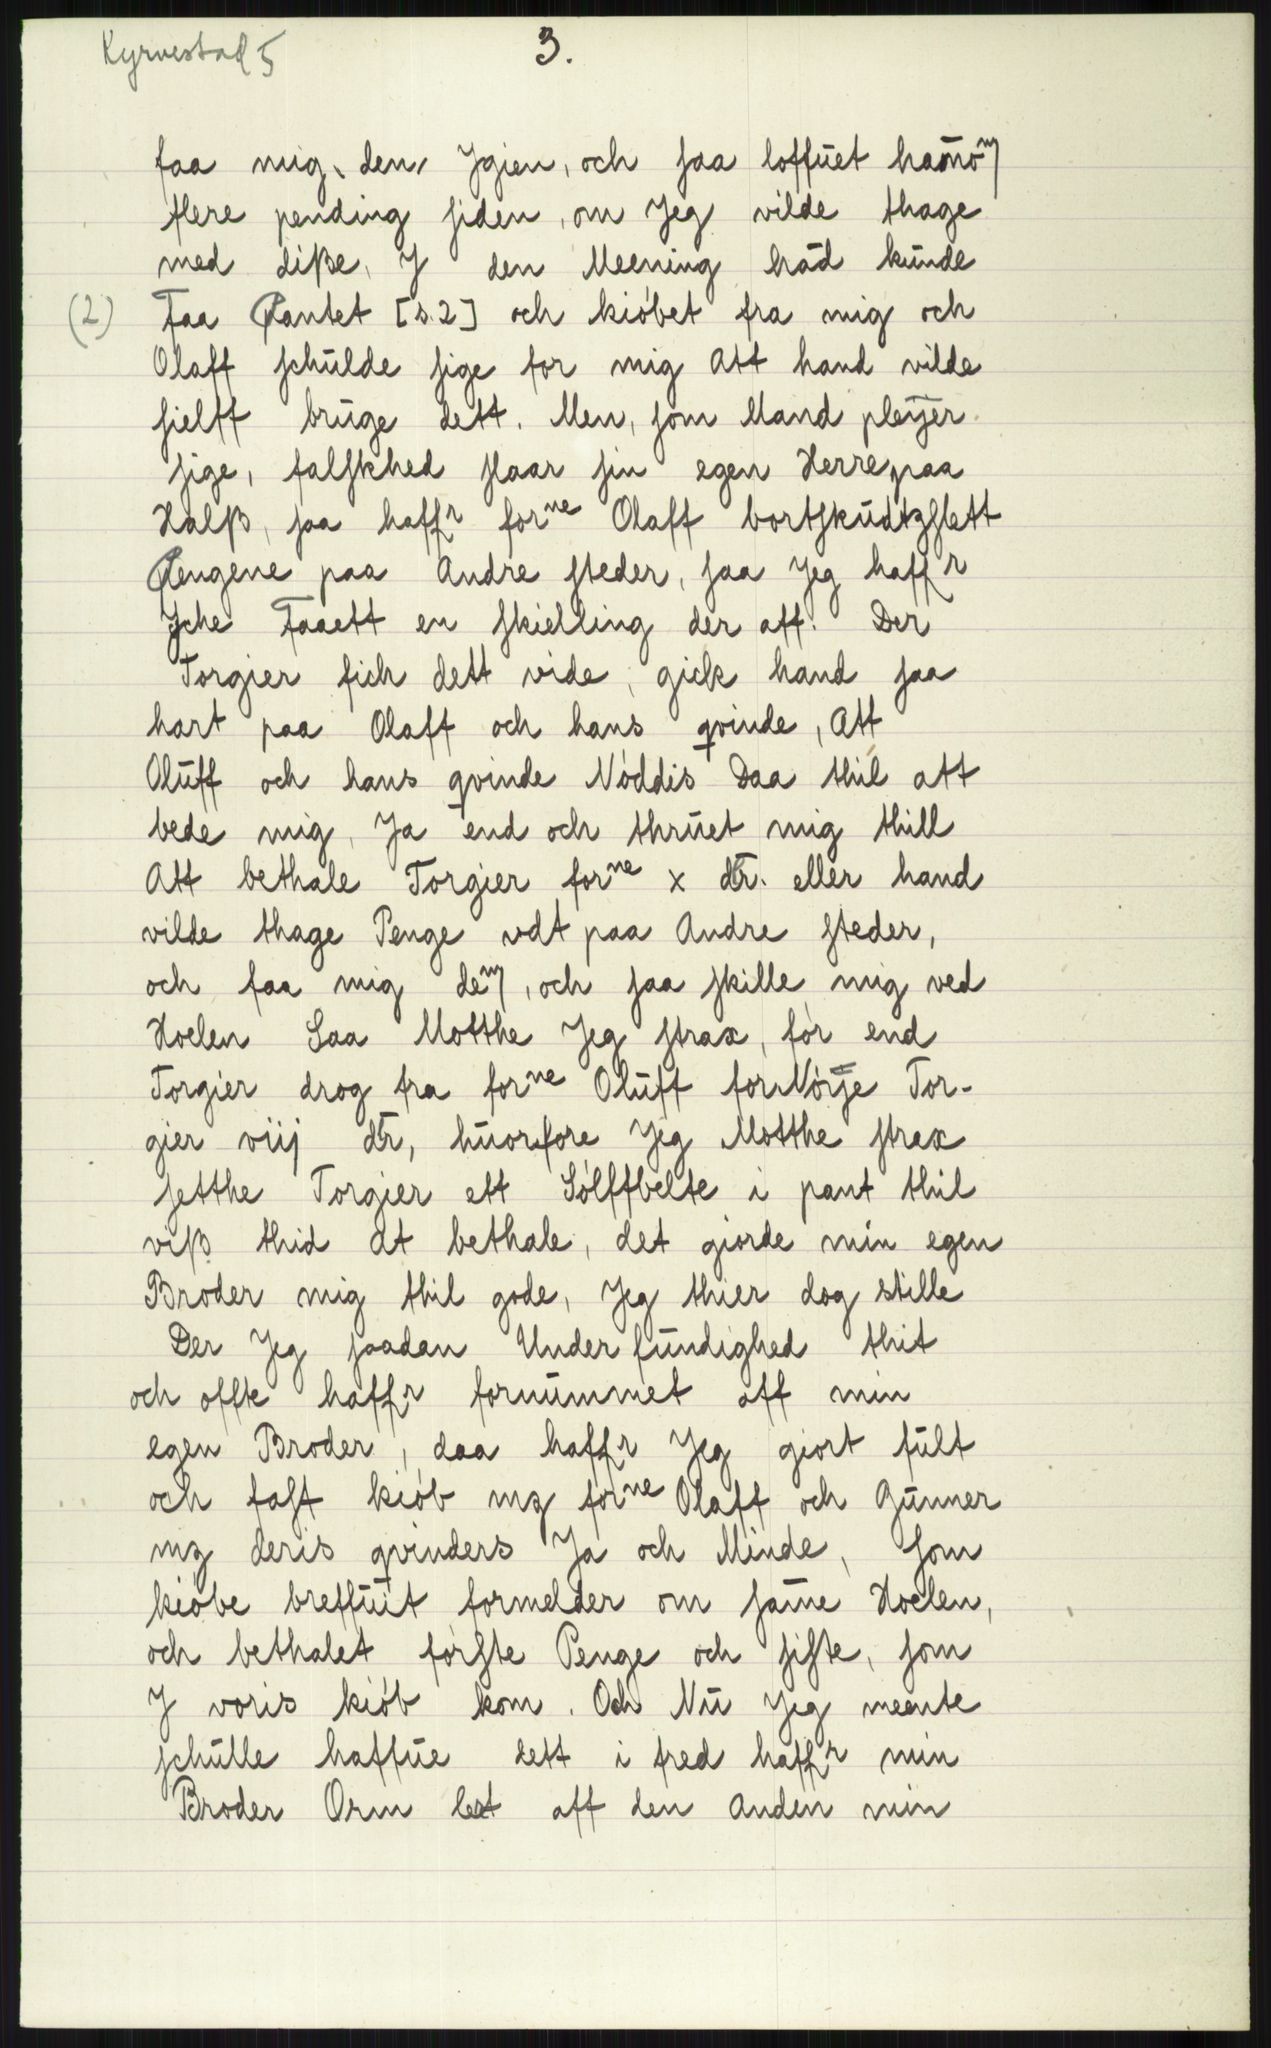 Kyrvestad 5
3.
faa mig den Ygien, och saa loffuet hannom
flere pending siden, om Jeg vilde thage
med diße, J den Meening hād kunde
(2) Faa Pantet [s. 2] och kiøbet fra mig och
Olaff schulde sige for mig Att hand vilde
sielff bruge dett. Men, som Mand pleyer
sige, falskhed slaar sin egen Herre paa
Halß, saa haffr forne Olaff bortskudtzslett
Pengene paa Andre steder, saa Jeg haffr
Jche Faaett en skielling der aff. Der
Torgier fich dett vide, gick hand saa
hart paa Olaff och hans qvinde, Att
Oluff och hans qvinde Nøddis Daa thil att
bede mig, Ja end och thruet mig thill
Att bethale Torgier forne x dr. eller hand
vilde thage Penge vdt paa Andre steder,
och faa mig dem, och saa skille mig ved
Hoelen Saa Motthe Jeg strax, før end
Torgier drog fra forne Oluff fornørje Tor-
gier viij dr, huorfore Jeg Motthe strax
setthe Torgier ett Sølffbelte i pant thil
viß thid At bethale, det giorde min egen
Broder mig thil gode, Jeg thier dog stille
Der Jeg saadan Underfundighed thit
och offte haffr fornummet aff min
egen Broder, daa haffr Jeg giort fult
och fast kiøb mz forne Olaff och Gunner
mz deris qvinders Ja och Minde, som
kiøbe breffuit formelder om samme Hoelen,
och bethalet første Penge och siste, som
J voris kiøb kom. Och Nu Jeg meente
schulle haffue dett i fred haffr min
Broder Orm lest aff den anden min